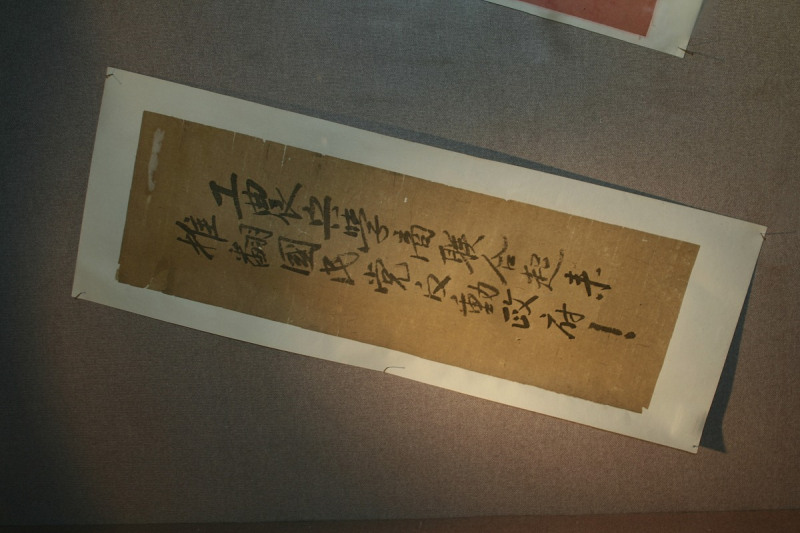 工農兵學商联合起来
推翻國民党反動政府！